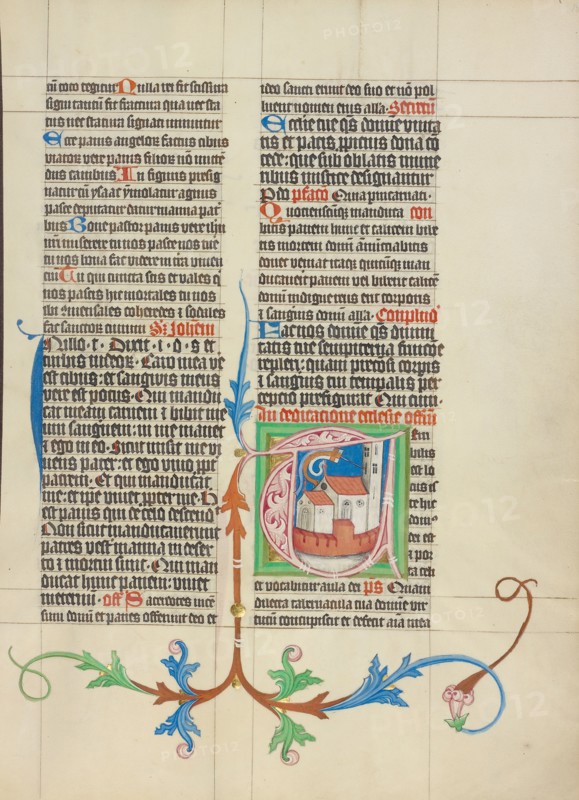 cū toto tegitur Nulla rei fit scissura
signi tantū fit fractura qua nec sta
tus nec statura signati minuitur
Ecce panis angelorū factus cibus
viatorū vere panis filiorū nō mittē
dus canibus In figuris presig
natur cū ysaac ymolatur agnus
pasce deputatur datur manna pat
bus Bone pastor panis vere ihū
nrī miserere tu nos pasce nos tue
tu nos bona fac videre in tra viuen
tiū Tu qui cuncta scis et vales q
nos pascis hic mortales tu nos
ibi ꝯmensales coheredes et sodales
fac sanctorū ciuium S. Johem
In illo · t · Dixit · i · d · s et
turbis iudeorꝝ · Caro mea ve
est cibus · et sangwis meus
vere est potus · Qui mandu
cat meam carnem et bibit me
um sangwinem · in me manet
et ego in eo · Sicut misit me vi
uens pater · et ego viuo ppt
patrem · Et qui manducat
me · et ipe viuet ppter me · h
est panis qui de celo descend
Non sicut manducauerunt
patres vestri manna in deser
to et mortui sunt · Qui man
ducat hunc panem · viuet
ineternū · off Sacerdotes incē
sum domī et panes offerunt deo et
ideo sancti erunt deo suo et nō pol
luent nomen eius alla · Secretū
Ecclesie tue qs domine vnita
tis et pacis ppicius dona cō
cede · que sub oblatis mune
ribus mistice designantur
pfacō Quia p incarnati ·
Quociensqꝫ manduca com
bitis panem hunc et calicem bibe
tis mortem domī annūciabitis
donec veniat itaqꝫ quicūqꝫ man
ducauerit panem vel biberit calicē
domī indigne reus erit corporis
et sangwis domī alla · Conplend
Fac nos domine qs diuini
tatis tue sempiterna fruicōe
repleri · quam preciosi corpis
et sangwis tui temporalis per
cepcio prefigurat · Qui cum ·
In dedicacione ecclesie officiū
Terri
bilis
est lo
cus is
te hic
domꝰ
dei est
et por
ta celi
et vocabitur aula dei ps Quam
dilecta tabernacula tua domine vir
tutū concupiscit et deficit aīa mea
PHOTO12